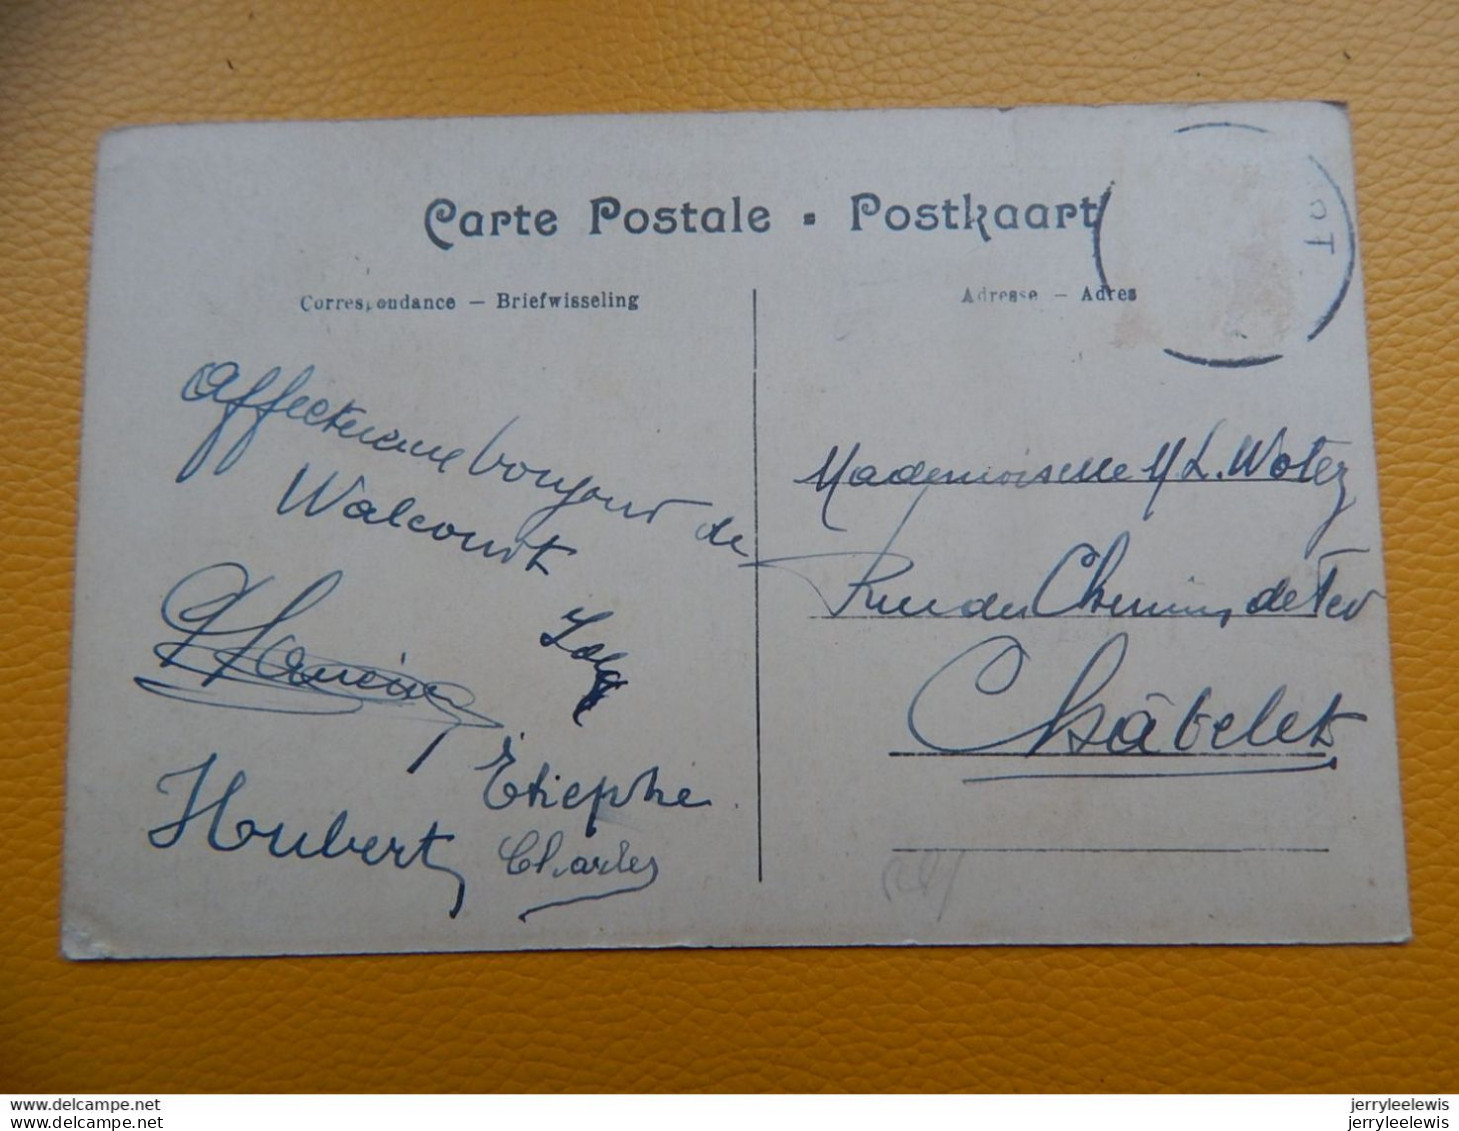 Carte Postale - Postkaart
Correspondance — Briefwisseling
Adresse — Adres
OT
Affectueux bonjour de
Walcourt
Hubert
Charles
Mademoiselle M L. Wotez
Rue du Chemin de Fer
Châtelet
www.delcampe.net
jerryleelewis
www.delcampe.net
jerryleelewis